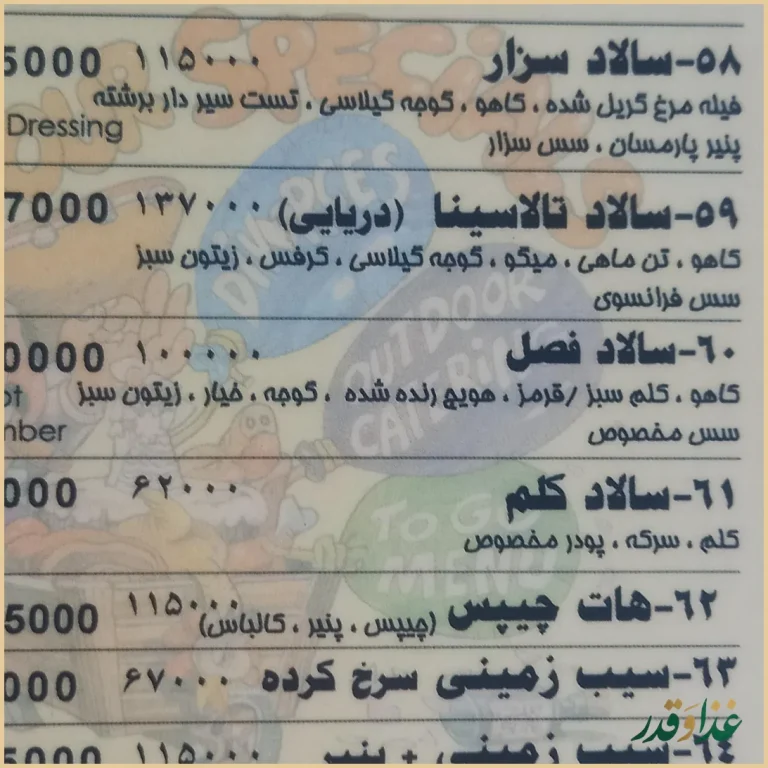 ۵۸-سالاد سزار ۱۱۵۰۰۰ 5000
فیله مرغ گریل شده ، کاهو ، گوجه گیلاسی ، تست سیر دار برشته
Dressing
پنیر پارمسان ، سس سزار
۵۹-سالاد تالاسینا (دریایی) ۱۳۷۰۰۰ 7000
کاهو ، تن ماهی ، میگو ، گوجه گیلاسی ، کرفس ، زیتون سبز
سس فرانسوی
۶۰-سالاد فصل ۱۰۰۰۰۰ 0000
کاهو ، کلم سبز /قرمز ، هویج رنده شده ، گوجه ، خیار ، زیتون سبز
سس مخصوص
۶۱-سالاد کلم ۶۲۰۰۰ 000
کلم ، سرکه ، پودر مخصوص
۶۲-هات چیپس (چیپس ، پنیر ، کالباس) ۱۱۵۰۰۰ 5000
۶۳-سیب زمینی سرخ کرده ۶۷۰۰۰ 000
۶۴-سیب زمینی + پنیر ۱۱۵۰۰۰ 5000
OUR SPECIALS
OUTDOOR
CATERING
TO GO
MENU
غذا و قدر